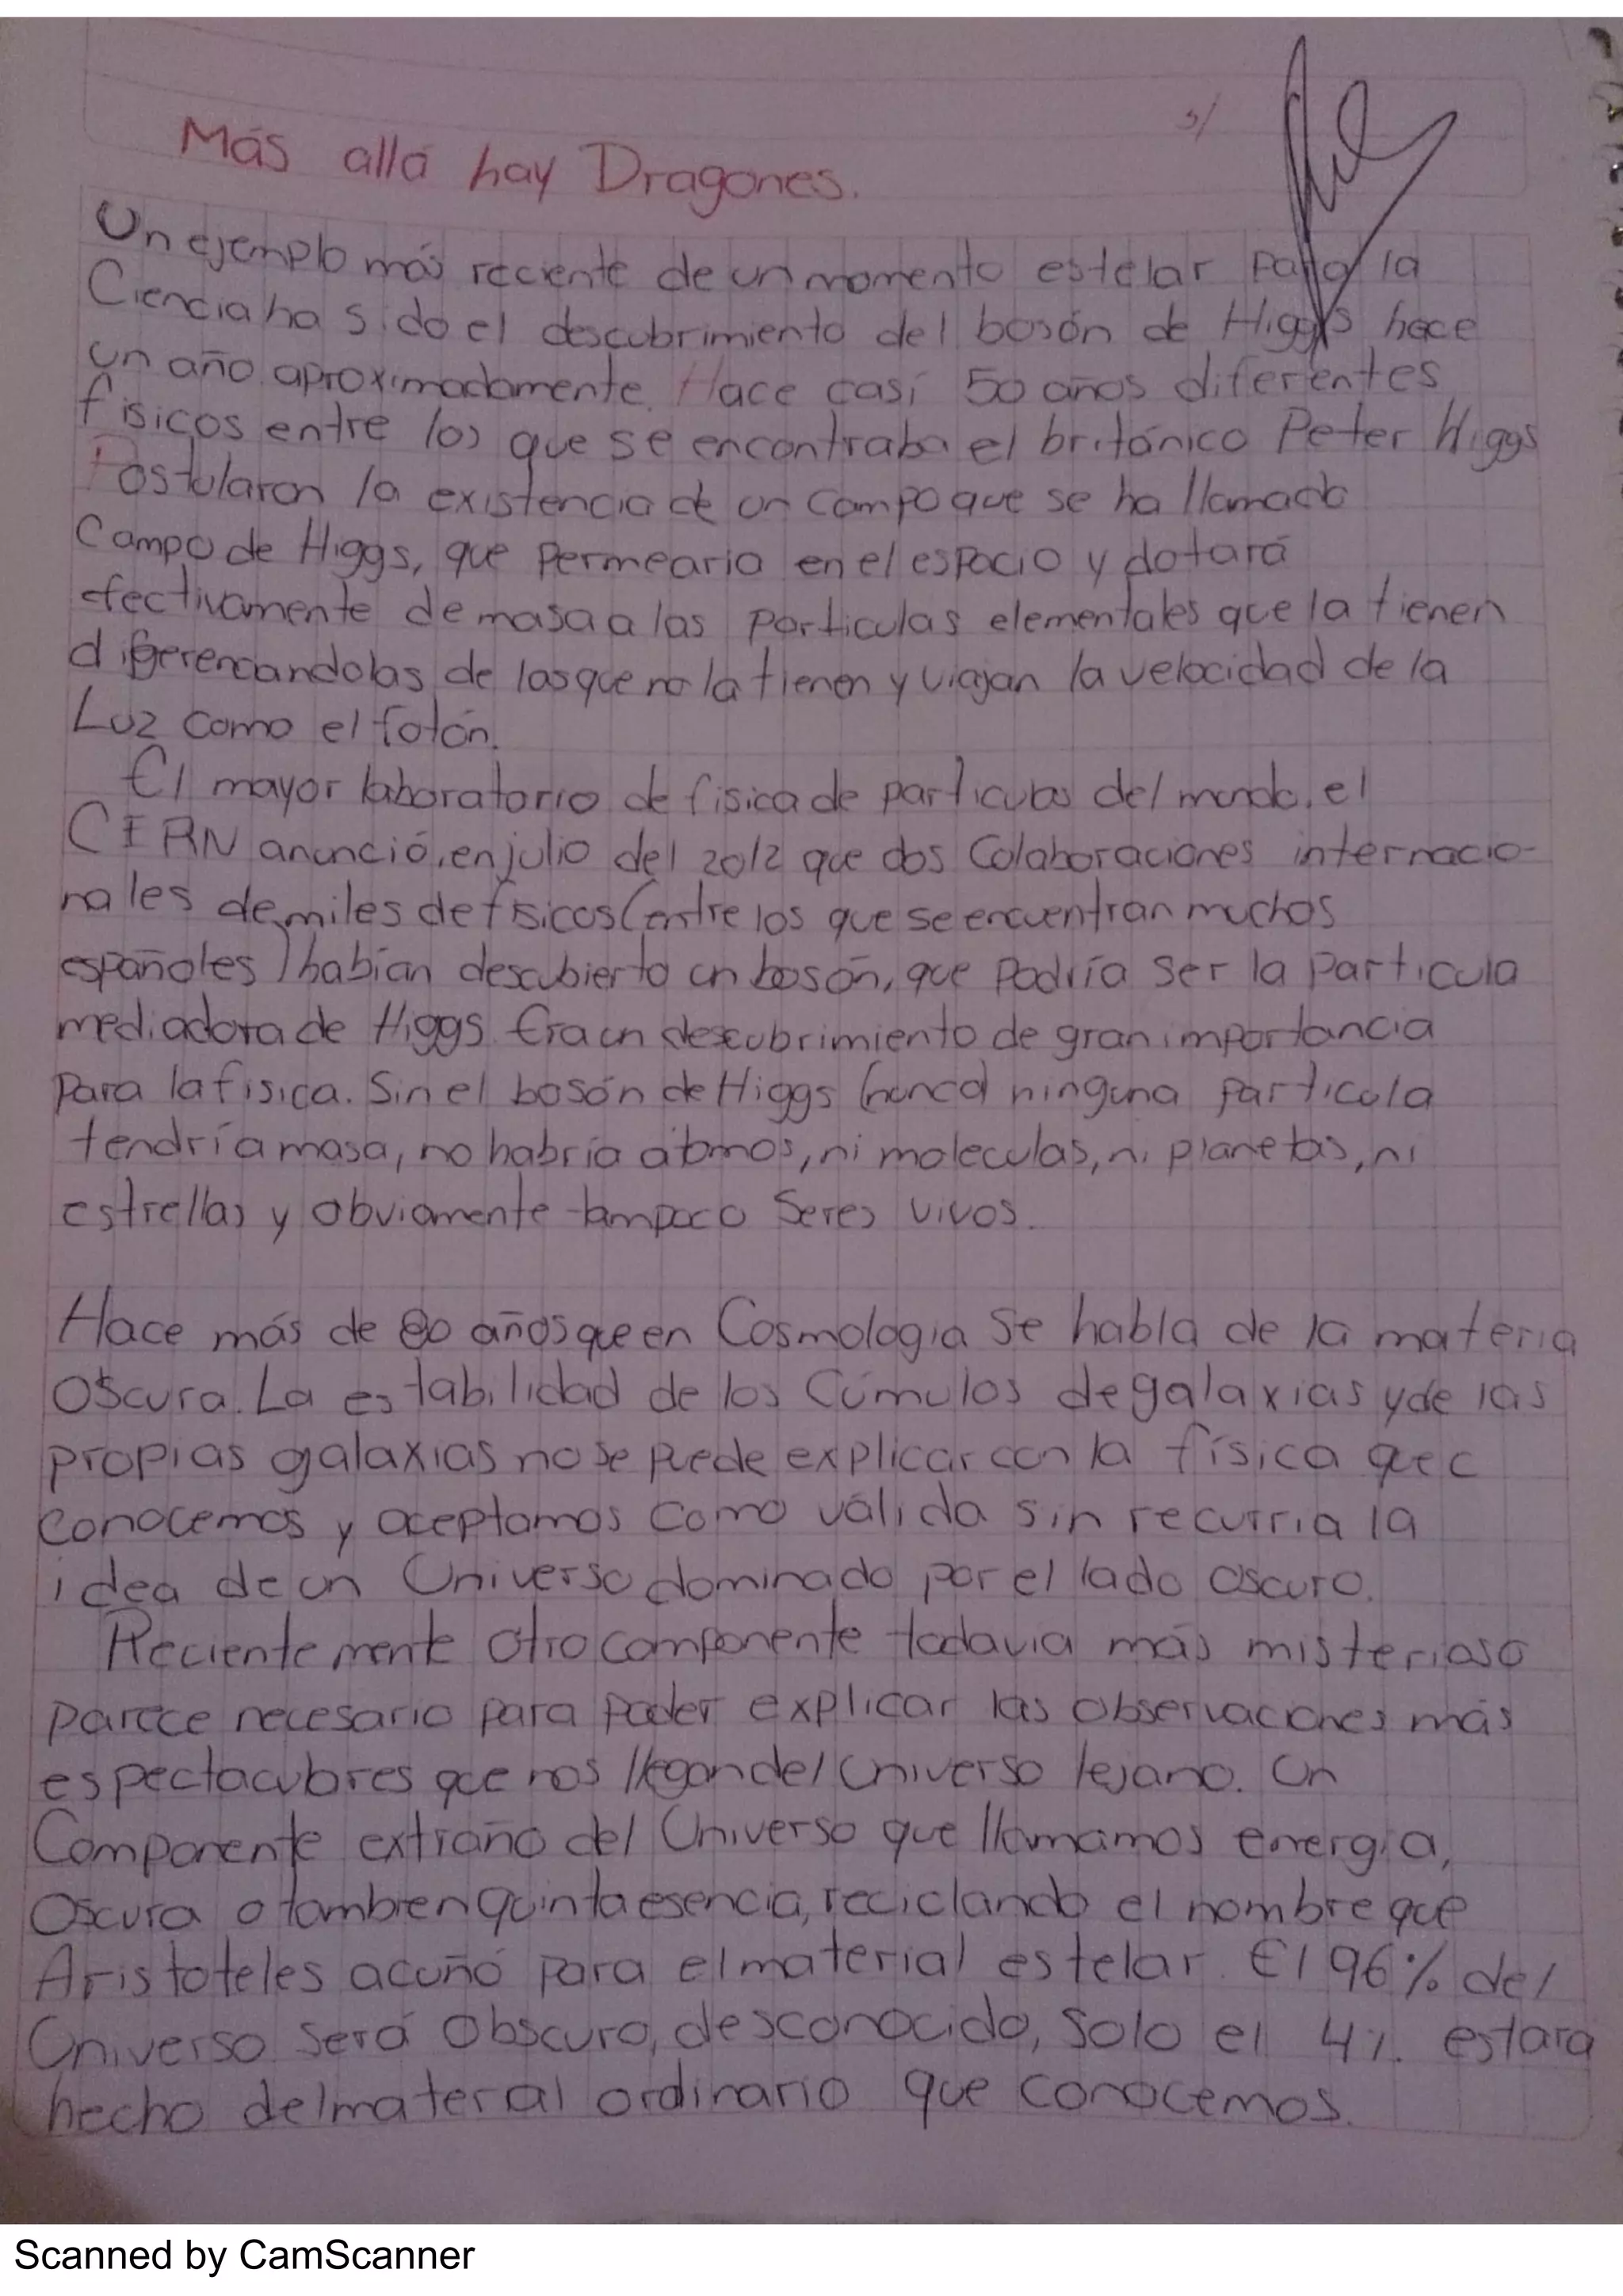 Más allá hay Dragones.
Un ejemplo más reciente de un momento estelar para la
Ciencia ha sido el descubrimiento del bosón de Higgs hace
un año aproximadamente. Hace casi 50 años diferentes
fisicos entre los que se encontraba el británico Peter Higgs
Postularon la existencia de un campo que se ha llamado
Campo de Higgs, que permearia en el espacio y dotará
efectivamente de masa a las particulas elementales que la tienen
diferenciandolas de las que no la tienen y viajan la velocidad de la
Luz como el fotón.
El mayor laboratorio de fisica de particulas del mundo, el
CERN anunció, en julio del 2012 que dos Colaboraciones internacio-
nales de miles de fisicos (entre los que se encuentran muchos
españoles) habían descubierto un bosón, que Podría ser la particula
mediadora de Higgs. Era un descubrimiento de gran importancia
Para la fisica. Sin el bosón de Higgs (nunca) ninguna particula
tendría masa, no habría átomos, ni moleculas, ni planetas, ni
estrellas y obviamente tampoco Seres vivos.
Hace más de 80 años que en Cosmologia se habla de la materia
oscura. La estabilidad de los Cúmulos de galaxias y de las
propias galaxias no se puede explicar con la física que c
conocemos y aceptamos como válida sin recurria la
idea de un Universo dominado por el lado oscuro.
Recientemente otro componente todavia más misterioso
parece necesario para poder explicar las observaciones más
espectaculares que nos llegan del universo lejano. Un
Componente extraño del Universo que llamamos energia,
Oscura o tambien quinta esencia, reciclando el nombre que
Aristoteles acuñó para el material estelar. El 96% del
Universo será Obscuro, desconocido, Solo el 4%. estara
hecho del material ordinario que conocemos.
Scanned by CamScanner